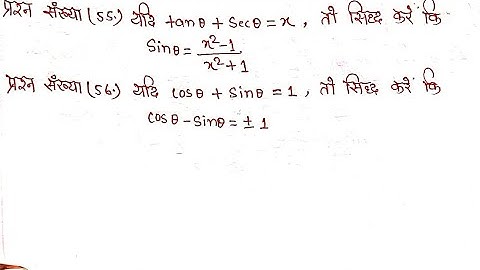 प्रश्न संख्या (55.) यदि tanθ + secθ = x , तो सिद्ध करें कि
Sinθ = x²-1 / x²+1
प्रश्न संख्या (56.) यदि cosθ + sinθ = 1 , तो सिद्ध करें कि
cosθ - sinθ = ± 1